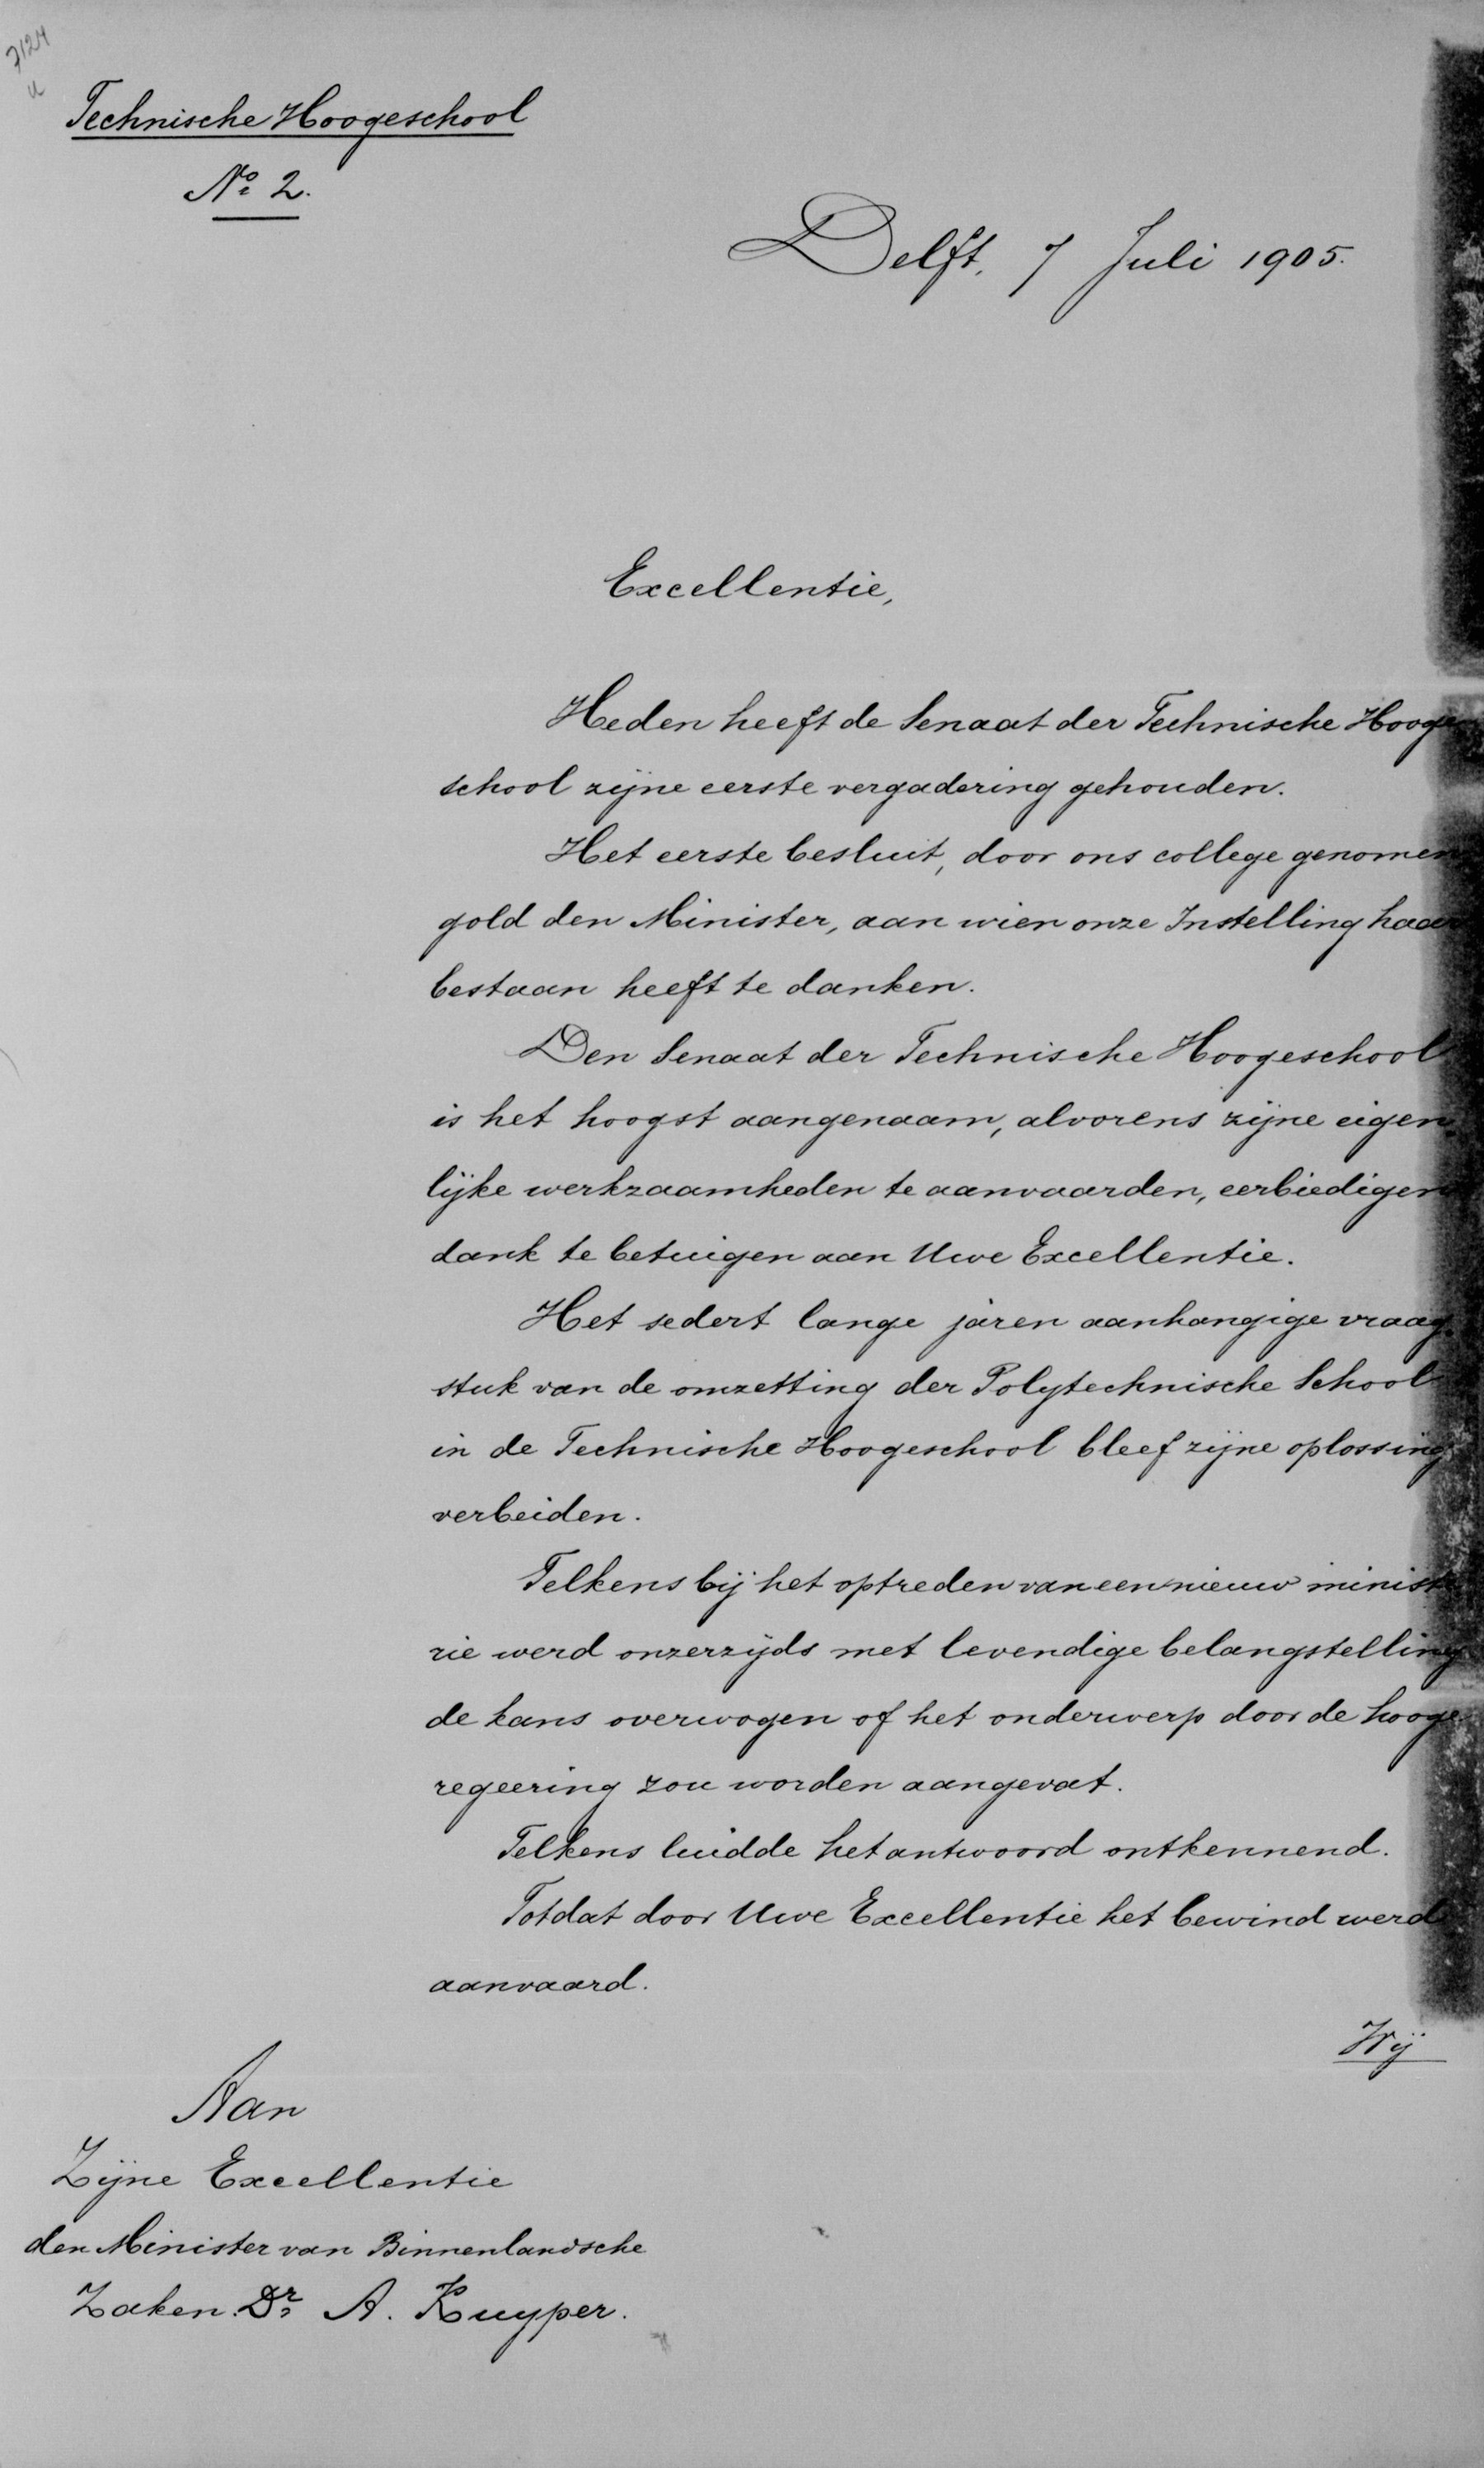 7124
Technische Hoogeschool
No 2.
Delft, 7 Juli 1905.
Excellentie,
Heden heeft de Senaat der Technische Hooge
school zijne eerste vergadering gehouden.
Het eerste besluit, door ons college genomen
gold den Minister, aan wien onze Instelling haar
bestaan heeft te danken.
Den Senaat der Technische Hoogeschool
is het hoogst aangenaam, alvorens zijne eigen
lijke werkzaamheden te aanvaarden, eerbiedigen
dank te betuigen aan Uwe Excellentie.
Het sedert lange jaren aanhangige vraag
stuk van de omzetting der Polytechnische School
in de Technische Hoogeschool bleef zijne oplossing
verbeiden.
Telkens bij het optreden van een nieuw ministe
rie werd onzerzijds met levendige belangstelling
de kans overwogen of het onderwerp door de hooge
regeering zou worden aangevat.
Telkens luidde het antwoord ontkennend.
Totdat door Uwe Excellentie het bewind werd
aanvaard.
Wij
Aan
Zijne Excellentie
den Minister van Binnenlandsche
Zaken. Dr. A. Kuyper.